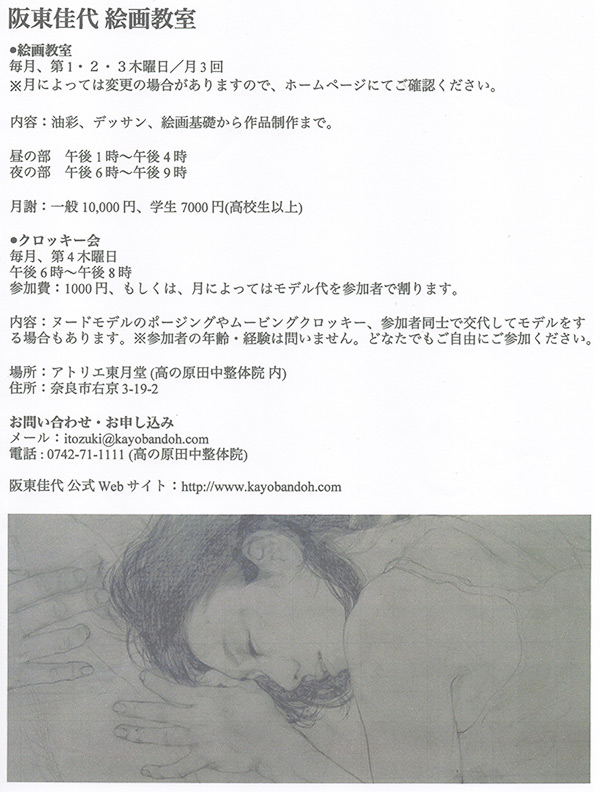 阪東佳代 絵画教室
●絵画教室
毎月、第1・2・3木曜日／月3回
※月によっては変更の場合がありますので、ホームページにてご確認ください。
内容：油彩、デッサン、絵画基礎から作品制作まで。
昼の部　午後1時～午後4時
夜の部　午後6時～午後9時
月謝：一般 10,000円、学生 7000円(高校生以上)
●クロッキー会
毎月、第4木曜日
午後6時～午後8時
参加費：1000円、もしくは、月によってはモデル代を参加者で割ります。
内容：ヌードモデルのポージングやムービングクロッキー、参加者同士で交代してモデルをす
る場合もあります。※参加者の年齢・経験は問いません。どなたでもご自由にご参加ください。
場所：アトリエ東月堂 (高の原田中整体院 内)
住所：奈良市右京 3-19-2
お問い合わせ・お申し込み
メール：itozuki@kayobandoh.com
電話 : 0742-71-1111 (高の原田中整体院)
阪東佳代 公式 Web サイト：http://www.kayobandoh.com